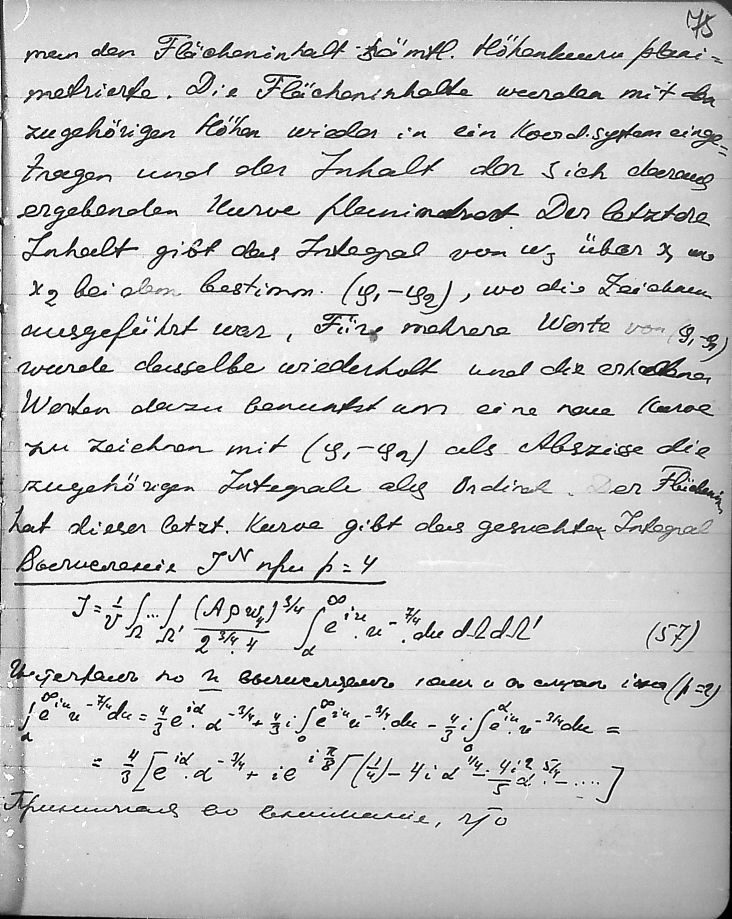 75
man den Flächeninhalt sämtl. Höhenkurv plani=
metrierte. Die Flächeninhalte wurden mit den
zugehörigen Höhen wieder in ein Koord.system einge=
tragen und der Inhalt der sich daraus
ergebenden Kurve planimetriert. Der letztere
Inhalt gibt das Integral von w₅ über x₁
x₂ bei dem bestimm. (φ₁-φ₂), wo die Zeichnun
ausgeführt war. Für mehrere Werte von (φ₁-φ₂)
wurde dasselbe wiederholt und die erhaltenen
Werten dazu benuntzt um eine neue Kurve
zu zeichnen mit (φ₁-φ₂) als Abszisse die
zugehörigen Integrale als Ordinat. Der Flächenin
hat dieser letzt. Kurve gibt das gesuchte Integral
Вычисленiе J^N при p = 4
J = 1/v ∫_Ω ... ∫_Ω' (Aρw₄)^{3/4} / 2^{3/4}·4 ∫_α^∞ e^{iu}·u^{-7/4}·du dΩdΩ' (57)
Интеграль по u вычисляемъ какъ и в случаѣ (p=2)
∫_α^∞ e^{iu} u^{-7/4} du = 4/3 e^{iα}·α^{-3/4} + 4/3 i ∫_0^∞ e^{iu} u^{-3/4}·du - 4/3 i ∫_0^α e^{iu}·u^{-3/4} du =
= 4/3 [e^{iα}·α^{-3/4} + i e^{iπ/8} Γ(1/4) - 4iα^{1/4} - 4i²/5 α^{5/4} - ....]
Принимая во вниманiе, что